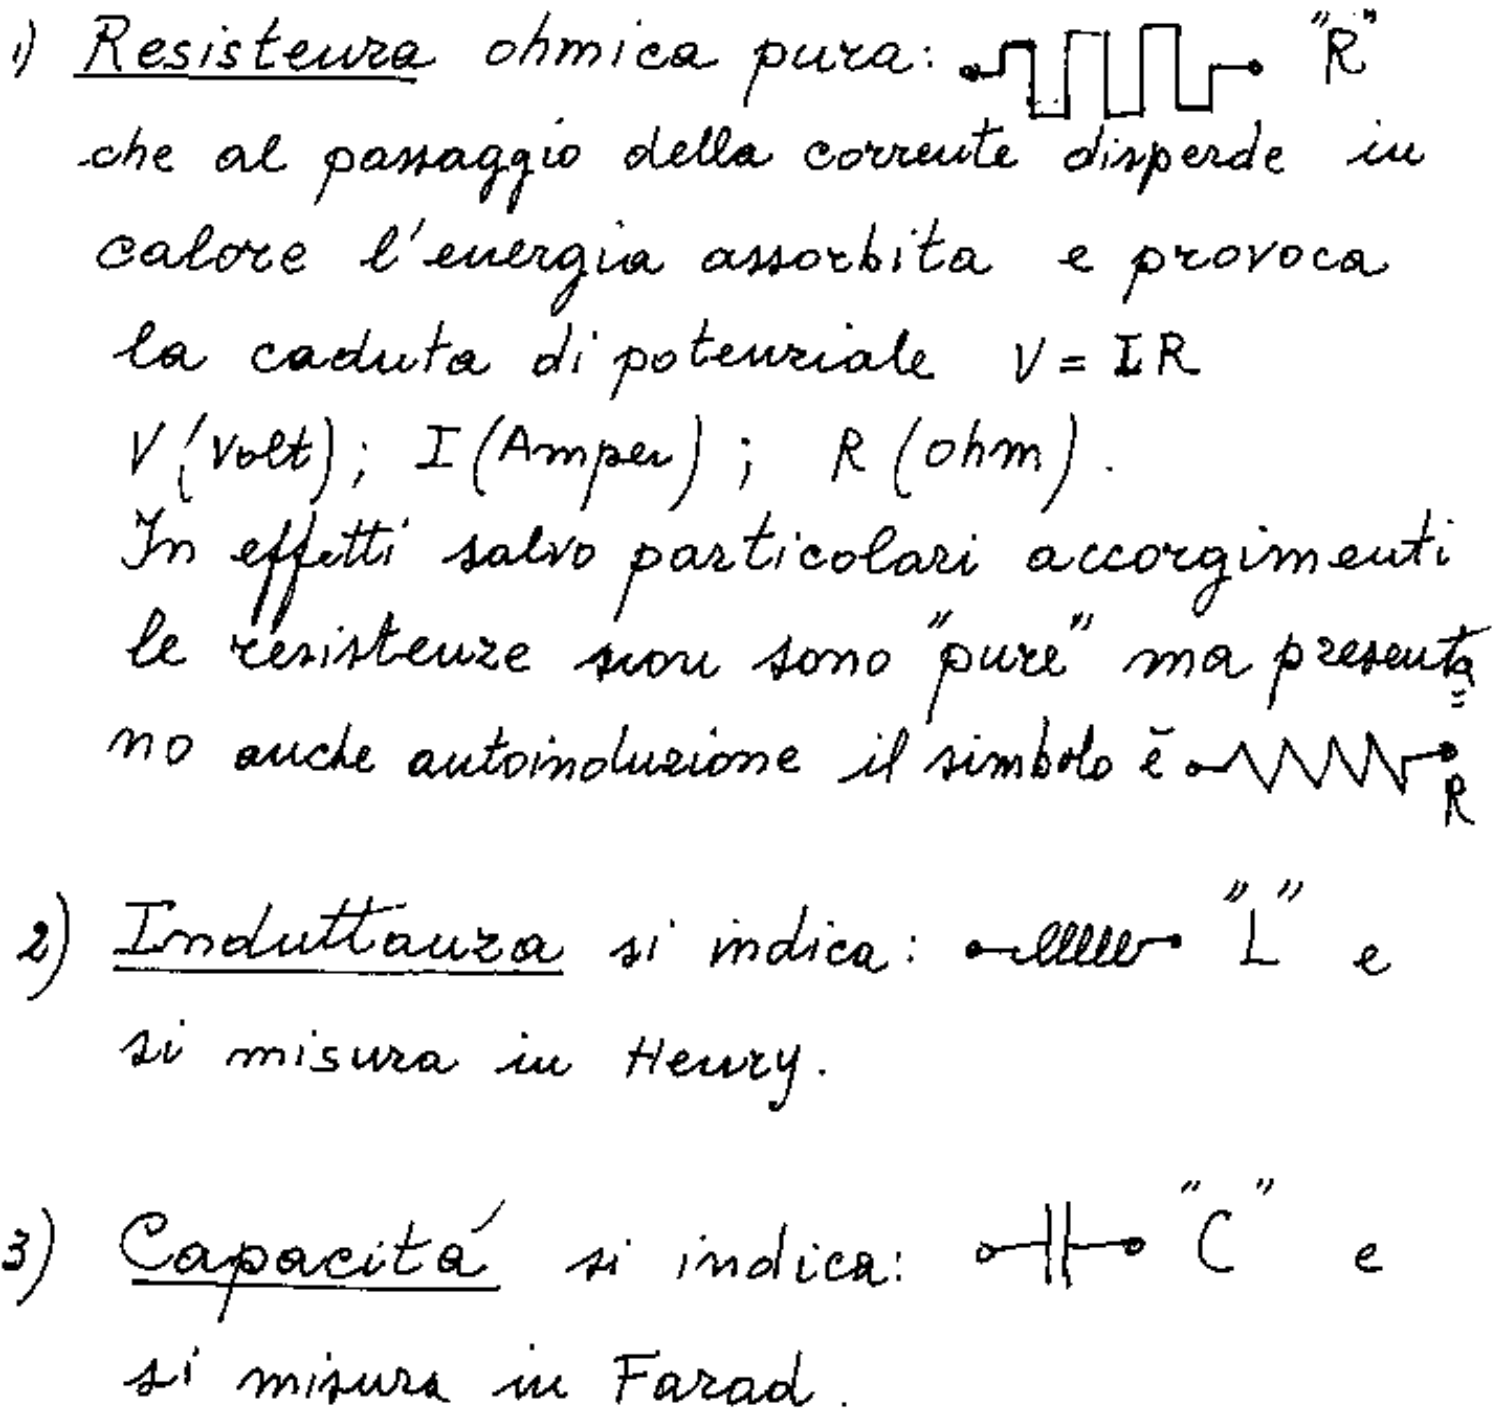 1) Resistenza ohmica pura: "R"
che al passaggio della corrente disperde in
calore l'energia assorbita e provoca
la caduta di potenziale V = IR
V (Volt); I (Amper); R (ohm).
In effetti salvo particolari accorgimenti
le resistenze non sono "pure" ma presenta=
no anche autoinduzione il simbolo è R
2) Induttanza si indica: "L" e
si misura in Henry.
3) Capacitá si indica: "C" e
si misura in Farad.